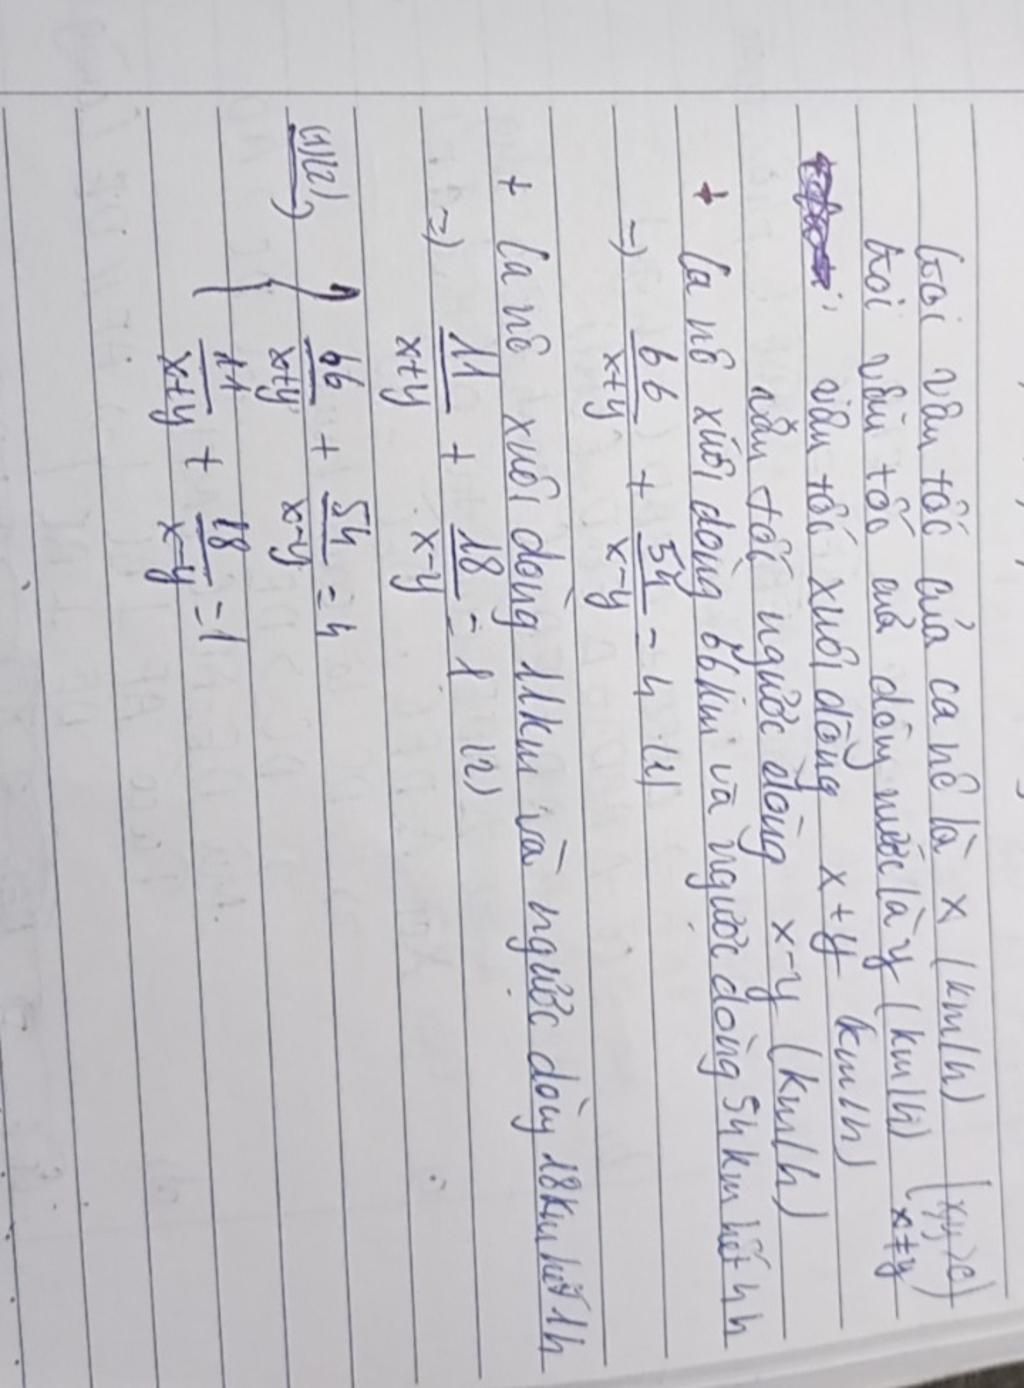 Gọi vận tốc của ca nô là x (km/h) (x,y>0)
Gọi vận tốc của dòng nước là y (km/h) x≠y
vận tốc xuôi dòng x+y km/h)
vận tốc ngược dòng x-y (km/h)
+ Ca nô xuôi dòng 66km và ngược dòng 54km hết 4h
=) 66/x+y + 54/x-y = 4 (1)
+ Ca nô xuôi dòng 11km và ngược dòng 18km hết 1h
=) 11/x+y + 18/x-y = 1 (2)
(1)(2) =) { 66/x+y + 54/x-y = 4
11/x+y + 18/x-y = 1